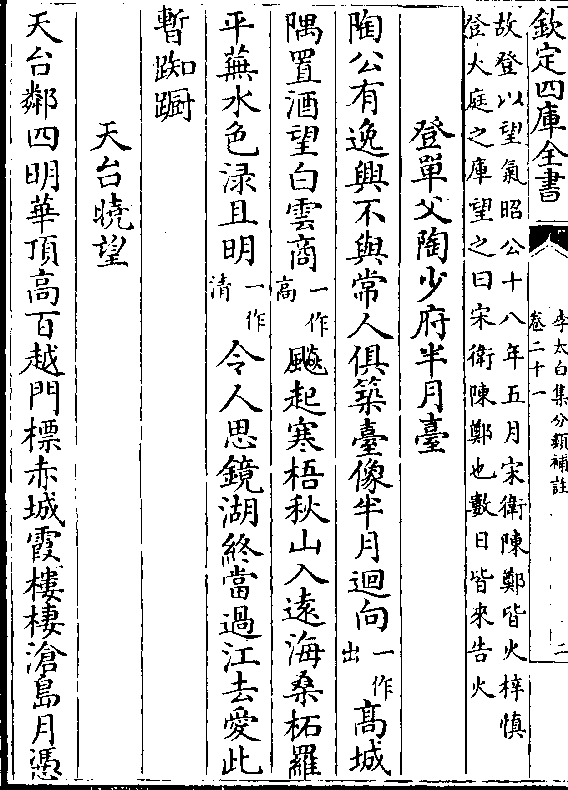 欽定四庫全書
李太白集分類補註
卷二十一
二
故登以望氣昭公十八年五月宋衛陳鄭皆火梓慎
登大庭之庫望之曰宋衛陳鄭也數日皆來告火
登單父陶少府半月臺
陶公有逸興不與常人俱築臺像半月迴向一作出高城
隅置酒望白雲商一作高飇起寒梧秋山入遠海桑柘羅
平蕪水色渌且明一作清令人思鏡湖終當過江去愛此
暫踟蹰
天台曉望
天台鄰四明華頂高百越門標赤城霞樓棲滄島月憑